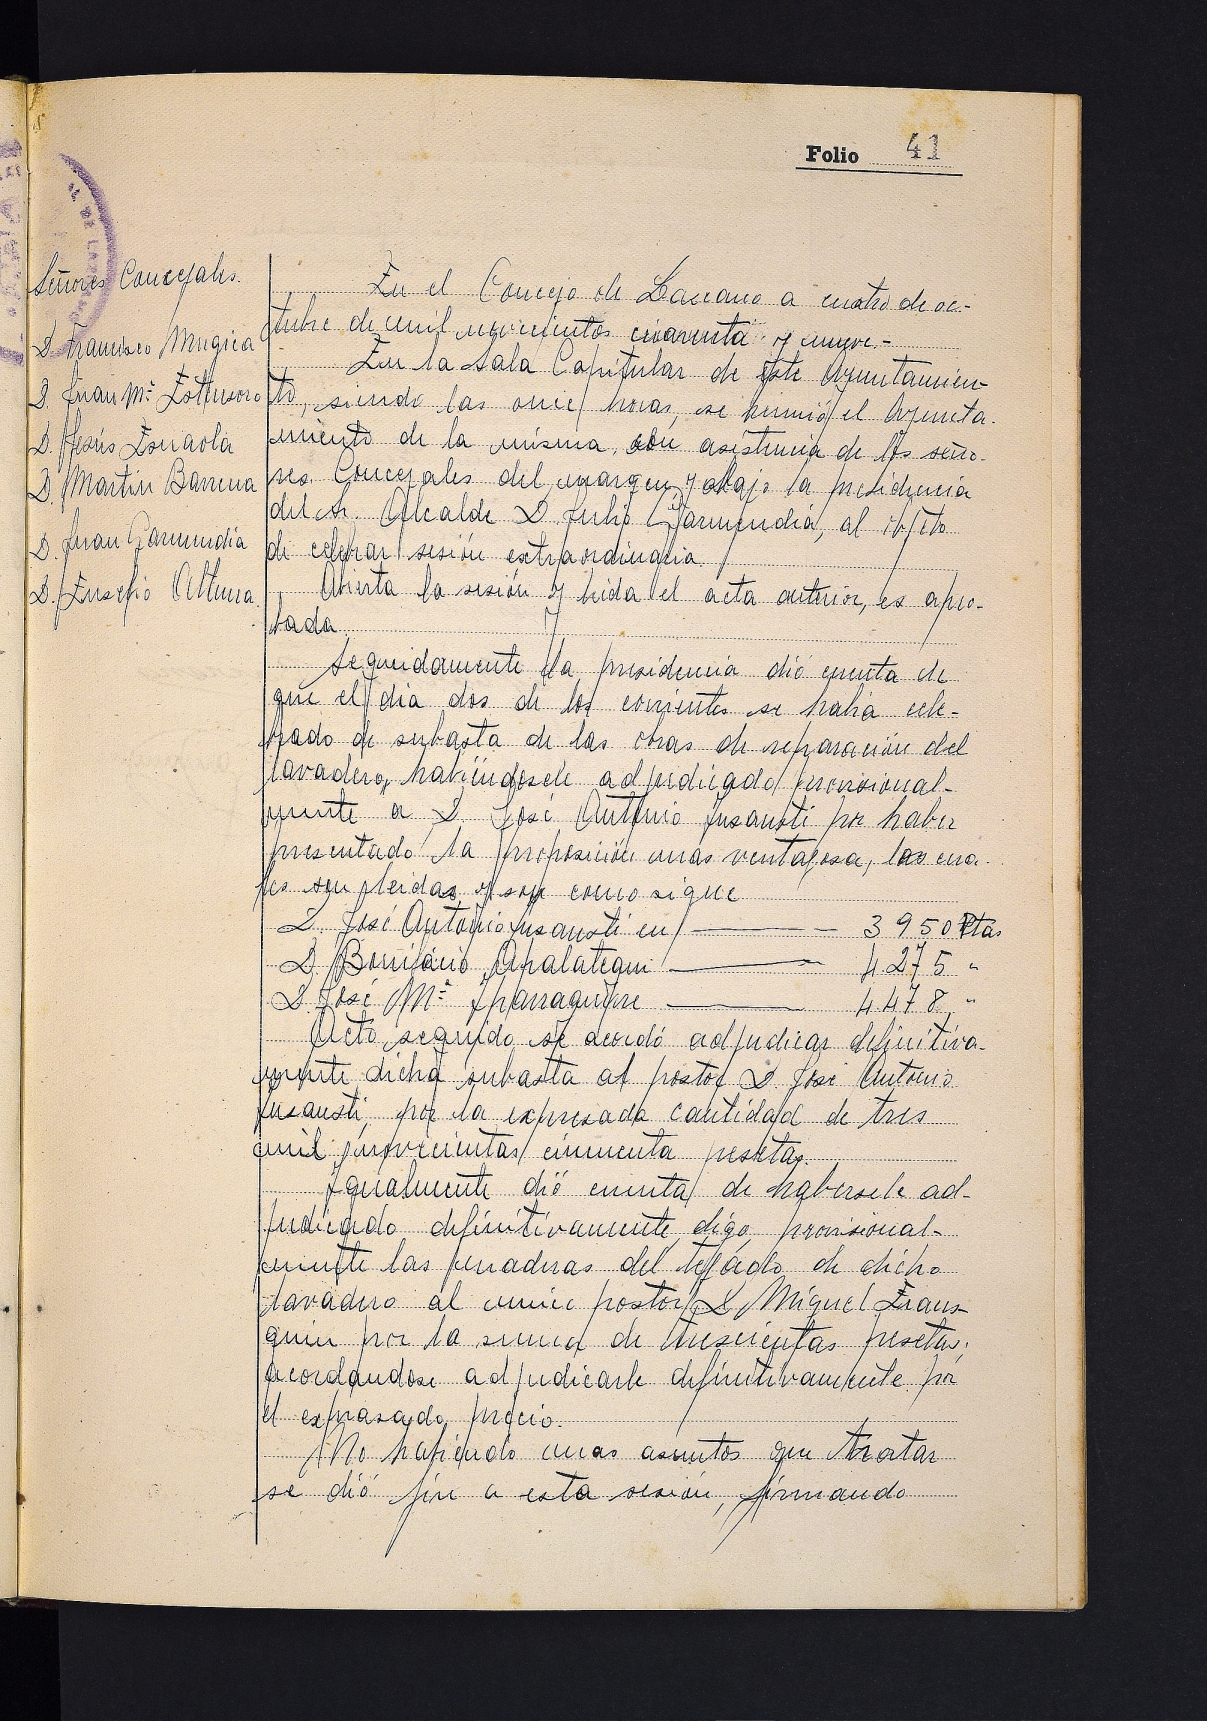 Folio 41
Señores Concejales.
D. Francisco Mugica
D. Juan Mª Estensoro
D. Jesús Esnaola
D. Martin Barrena
D. Juan Garmendia
D. Eusebio Altuna.
En el Concejo de Lazcano a cuatro de oc-
tubre de mil novecientos cincuenta y nueve.-
En la Sala Capitular de este Ayuntamien-
to, siendo las once horas, se reunió el Ayunta-
miento de la misma, con asistencia de los seño-
res Concejales del margen y abajo la presidencia
del Sr. Alcalde D. Julio Garmendia, al objeto
de celebrar sesión extraordinaria.
Abierta la sesión y leida el acta anterior, es apro-
bada.
Seguidamente la presidencia dió cuenta de
que el dia dos de los corrientes se habia cele-
brado de subasta de las obras de reparación del
lavadero, habiendosele adjudicado provisional-
mente a D. José Antonio Insausti por haber
presentado la proposición mas ventajosa, las cua-
les son leidas y son como sigue
D. José Antonio Insausti en — 3950 Ptas
D. Bonifacio Apalategui — 4.275 "
D. José Mª Iparraguirre — 4.478 "
Acto seguido se acordó adjudicar definitiva-
mente dicha subasta al postor D. José Antonio
Insausti, por la expresada cantidad de tres
mil novecientas cincuenta pesetas.
Igualmente dió cuenta de habersele ad-
judicado definitivamente, digo, provisional-
mente las maderas del tejado de dicho
lavadero al unico postor D. Miguel Eraus-
quin por la suma de trescientas pesetas,
acordandose adjudicarle definitivamente por
el exprasado precio.
No habiendo mas asuntos que tratar
se dió fin a esta sesión, firmando